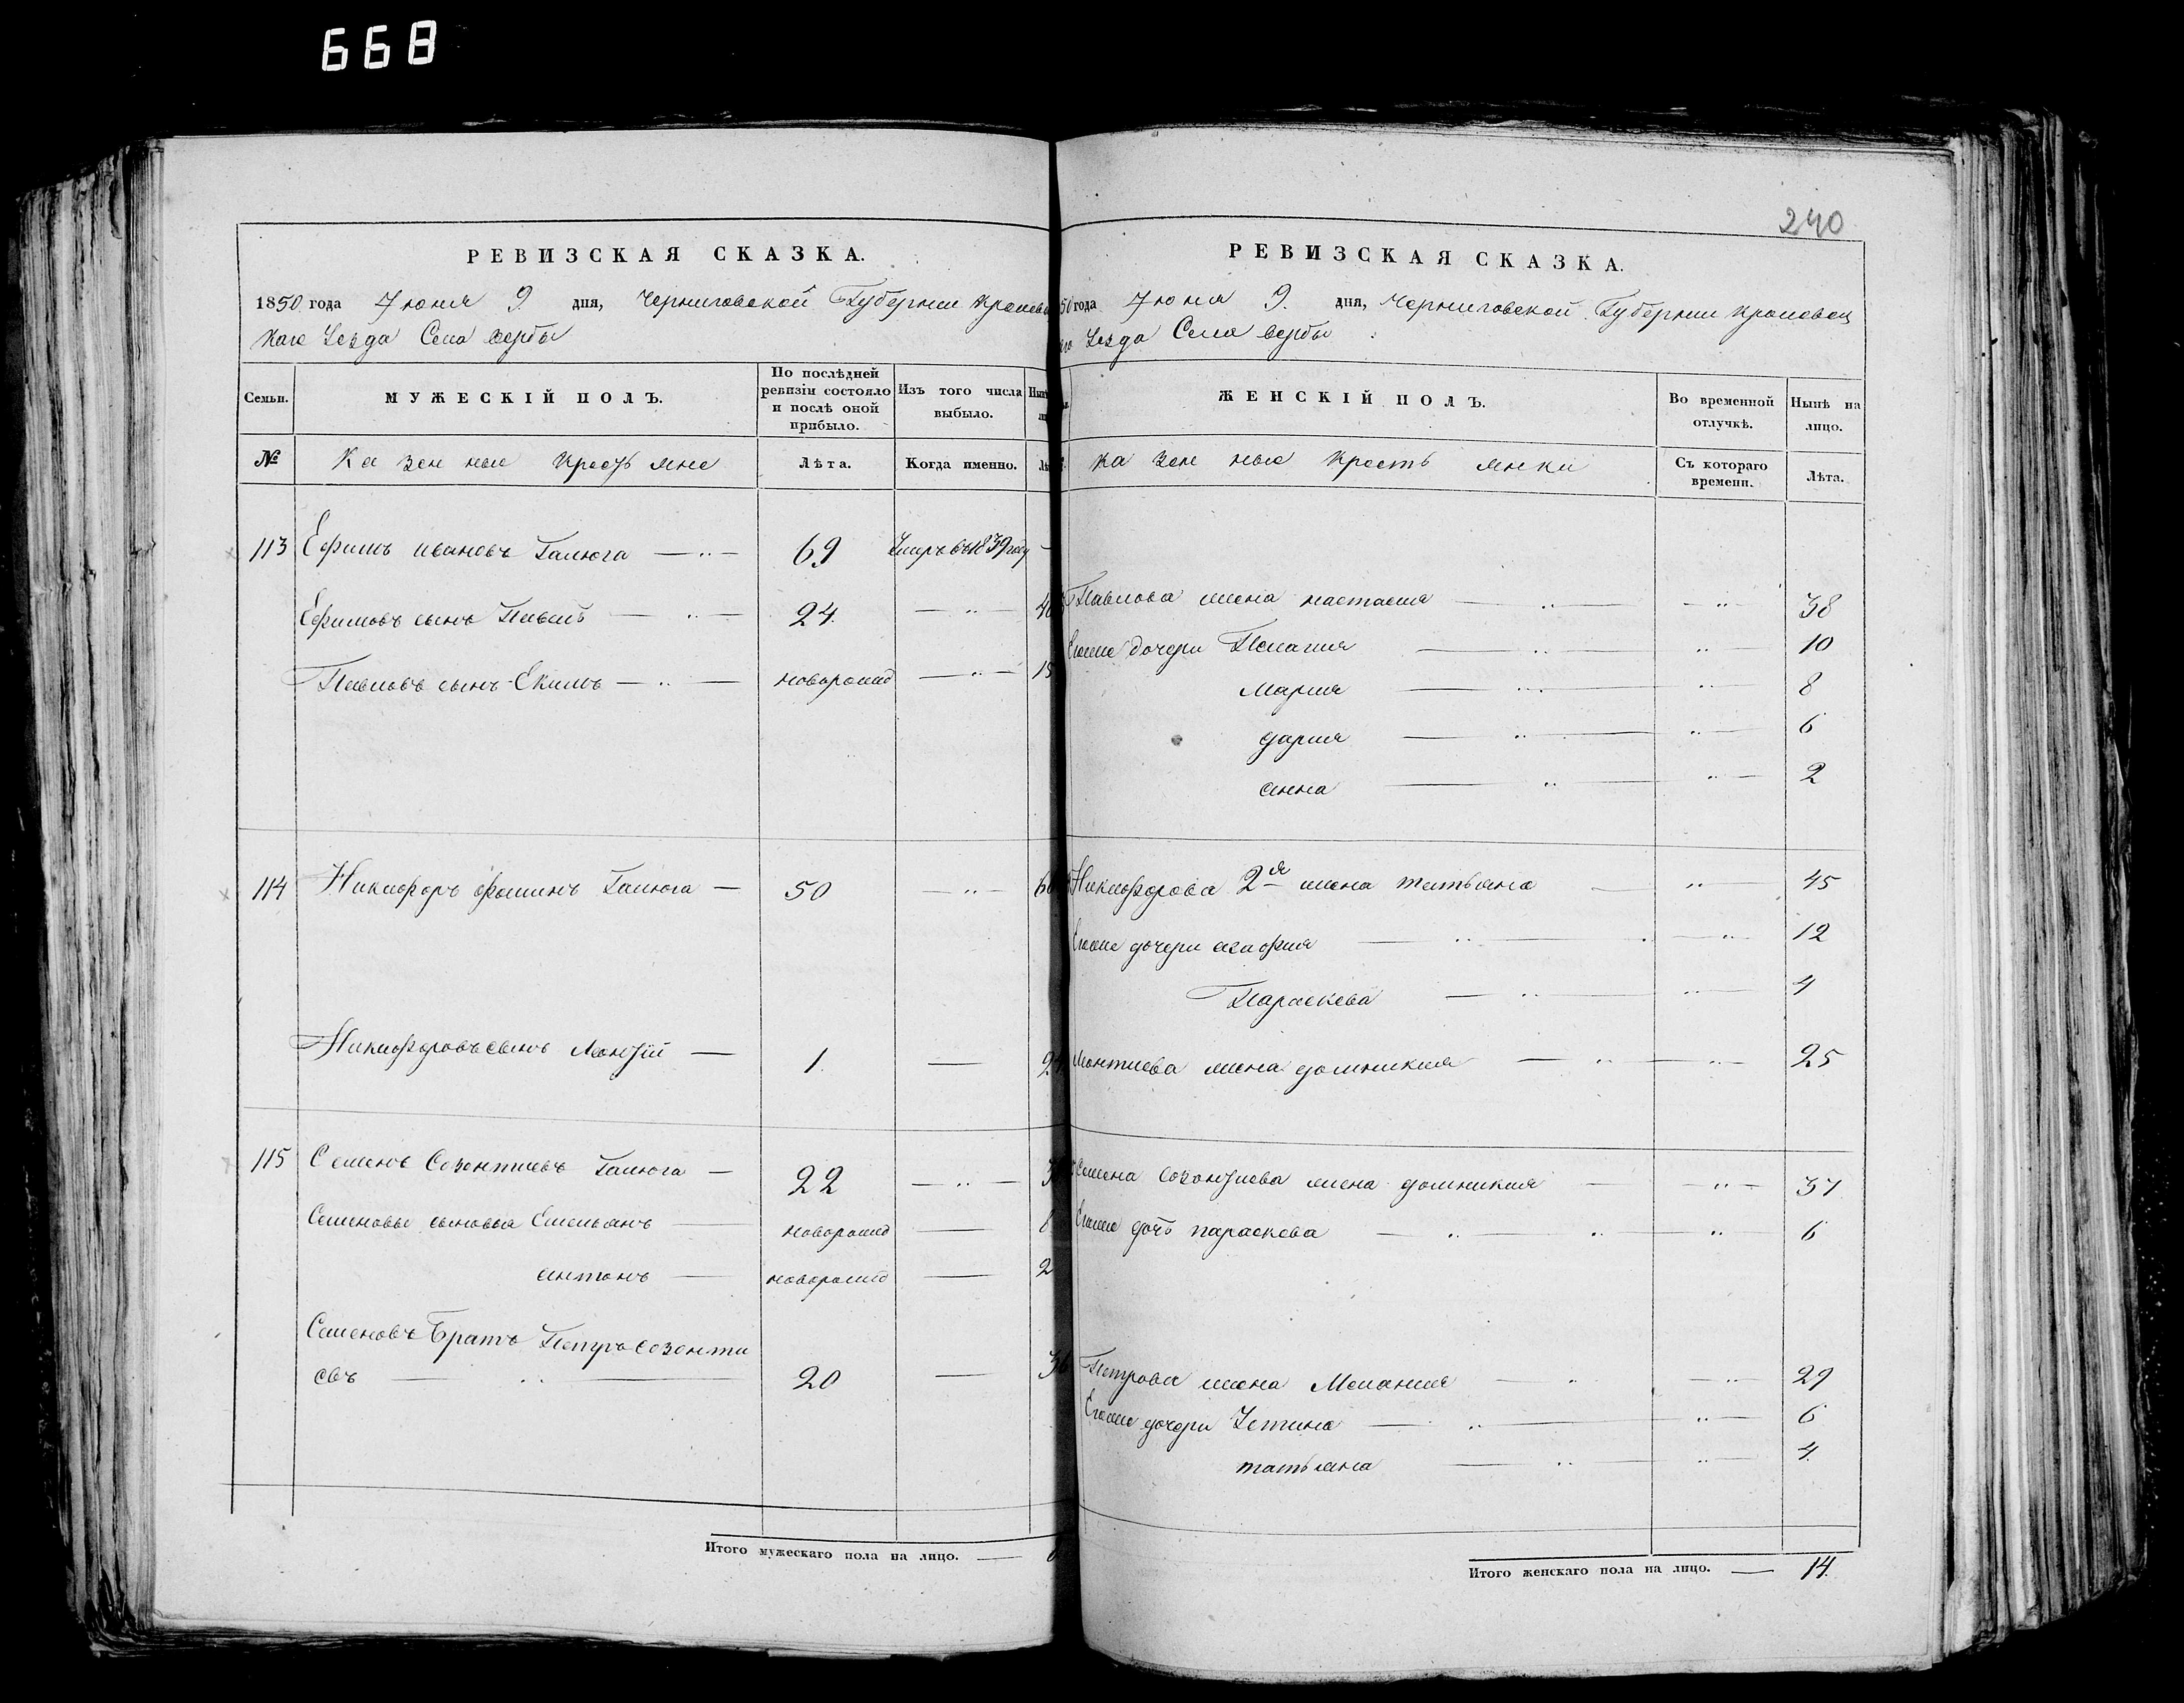 668
240
РЕВИЗСКАЯ СКАЗКА.
1850 года Июня 9. дня, Черниговской Губернии Кролеве
каго Уезда Села вербы
Семьи. МУЖЕСКІЙ ПОЛЪ. По послѣдней ревизіи состояло и послѣ оной прибыло. Изъ того числа выбыло.
№ Ка зен ные крестьяне Лѣта. Когда именно.
113 Ефимъ ивановъ Галюга — 69 Умръ въ 1839 году —
Ефимовъ сынъ Павелъ — 24. —
Павловъ сынъ Екимъ — новорожд —
114 Никифоръ фоминъ Галюга — 50 —
Никифоровъ сынъ Леонтій — 1. —
115 Семенъ Созонтиевъ Галюга — 22 —
Семеновы сыновья Емельянъ — новорожд — 8
антонъ — новорожд — 2
Семеновъ Братъ Петръ Созонти
евъ — 20 —
Итого мужескаго пола на лицо. —
РЕВИЗСКАЯ СКАЗКА.
50 года Июня 9. дня, Черниговской Губернии кролевец
Уезда Села вербы
ЖЕНСКІЙ ПОЛЪ. Во временной отлучкѣ. Нынѣ на лицо.
Ка зен ные кресть янки Съ котораго времени. Лѣта.
Павлова жена настасия — 38
Егоже дочери Пелагия — 10
Мария — 8
дария — 6
анна — 2
Никифорова 2я жена татьяна — 45
Егоже дочери агафия — 12
Параскева — 4
Леонтиева жена домникия — 25
Семена Созонтиева жена домникия — 37
Егоже дочь параскева — 6
Петрова жена Мелания — 29
Егоже дочери Устина — 6
татьяна — 4.
Итого женскаго пола на лицо. — 14.